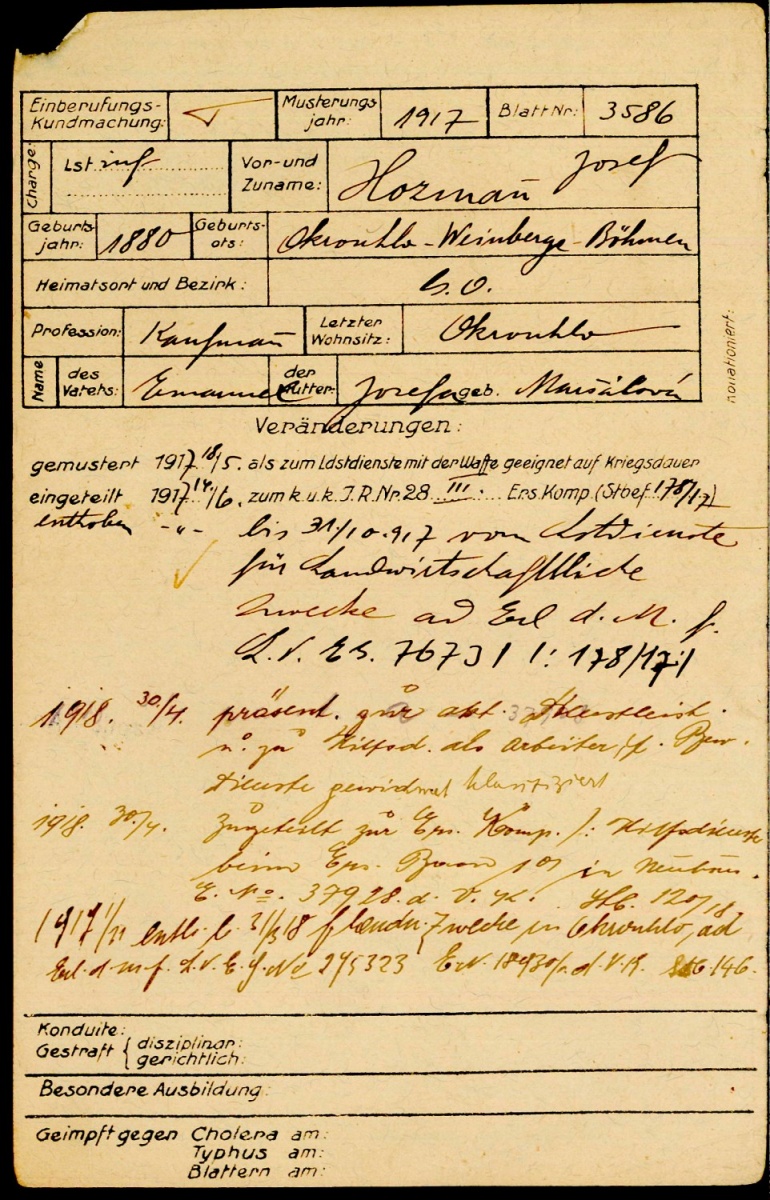 Einberufungs-Kundmachung:
Musterungsjahr: 1917
Blatt Nr: 3586
Charge: Lst inf
Vor- und Zuname: Hozman Josef
Geburtsjahr: 1880
Geburtsots: Okrouhlo - Weinberge - Böhmen
Heimatsort und Bezirk: G. O.
Profession: Kaufmann
Letzter Wohnsitz: Okrouhlo
Name des Vaters: Emanuel
der Mutter: Josefa geb. Maršálová
Kollationiert:
Veränderungen:
gemustert 1917 18/5. als zum Ldstdienste mit der Waffe geeignet auf Kriegsdauer
eingeteilt 1917 14/6. zum k. u. k. J. R. Nr. 28 III. Ers. Komp. (Stbef. 178/17)
enthoben -"- bis 31/10.917 vom Lstdienste
für Landwirtschaftliche
Zwecke ad Erl d. M. f.
L. V. ES. 76731 /: 178/17:/
1918. 30/4. präsent. zur akt. Dienstleist.
u. zu Hilfsd. als Arbeiter /f. Bew.
Dienste gewidmet klassifiziert
1918. 30/4. Zugeteilt zur Ers. Komp. /: Hilfsdienste
beim Ers. Baon in
E. No. 37928. d. V. K. Stb. 120/18
1917 enth. b. 31/3 18 f. landw. Zwecke in Okrouhlo, ad
Erl. d. M. f. L. V. E. No 275323 d. V. K. 146.
Konduite:
Gestraft { disziplinar:
gerichtlich:
Besondere Ausbildung:
Geimpft gegen Cholera am:
Typhus am:
Blattern am: